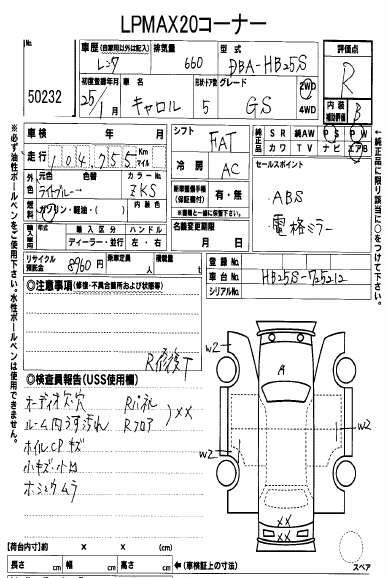 LPMAX20コーナー
No. 50232
車歴（自家用以外は記入） レンタ
排気量 660
型式 DBA-HB25S
評価点 R
初度登録年月 25年/1月
車名 キャロル
形状・ドア数 5
グレード GS
2WD 4WD
内装補助評価 B
車検 年 月
走行 104,755 Km マイル
シフト FAT
純正品 SR 純AW PS PW
カワ TV ナビ エアB
外色 元色 ライトブルー 色替 カラーNo. ZKS
冷房 AC
セールスポイント
ABS
電格ミラー
燃料 ガソリン・軽油・（ ） 内装色
新車整備手帳（保証書付） 有・無
輸入車 年式 輸入区分 ハンドル
ディーラー・並行 左・右
名義変更期限 月 日
リサイクル預託金 8960円 乗車定員 人 積載量 t
登録No.
車台No. HB25S-725212
シリアルNo.
◎注意事項（修復・不具合箇所および状態等）
R修復T
◎検査員報告（USS使用欄）
オーディオ欠・穴 Rパネル
ルーム内うす汚れ Rフロア ）XX
ホイルCPキズ
小キズ・小凹
ホシュウムラ
w2
A
w2 w2
XX
XX
スペア
【荷台内寸】 x x (cm)
長さ cm 幅 cm 高さ cm ←（車検証上の寸法）
※必ず油性ボールペンをご使用下さい。水性ボールペンは使用できません。
←純正品に限り該当に○をつけて下さい。